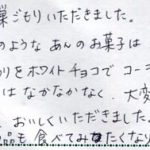 巣ごもりいただきました。
のような あんのお菓子は
りをホワイトチョコでコー
はなかなかなく、大変
おいしくいただきました。
品も食べてみたくなり